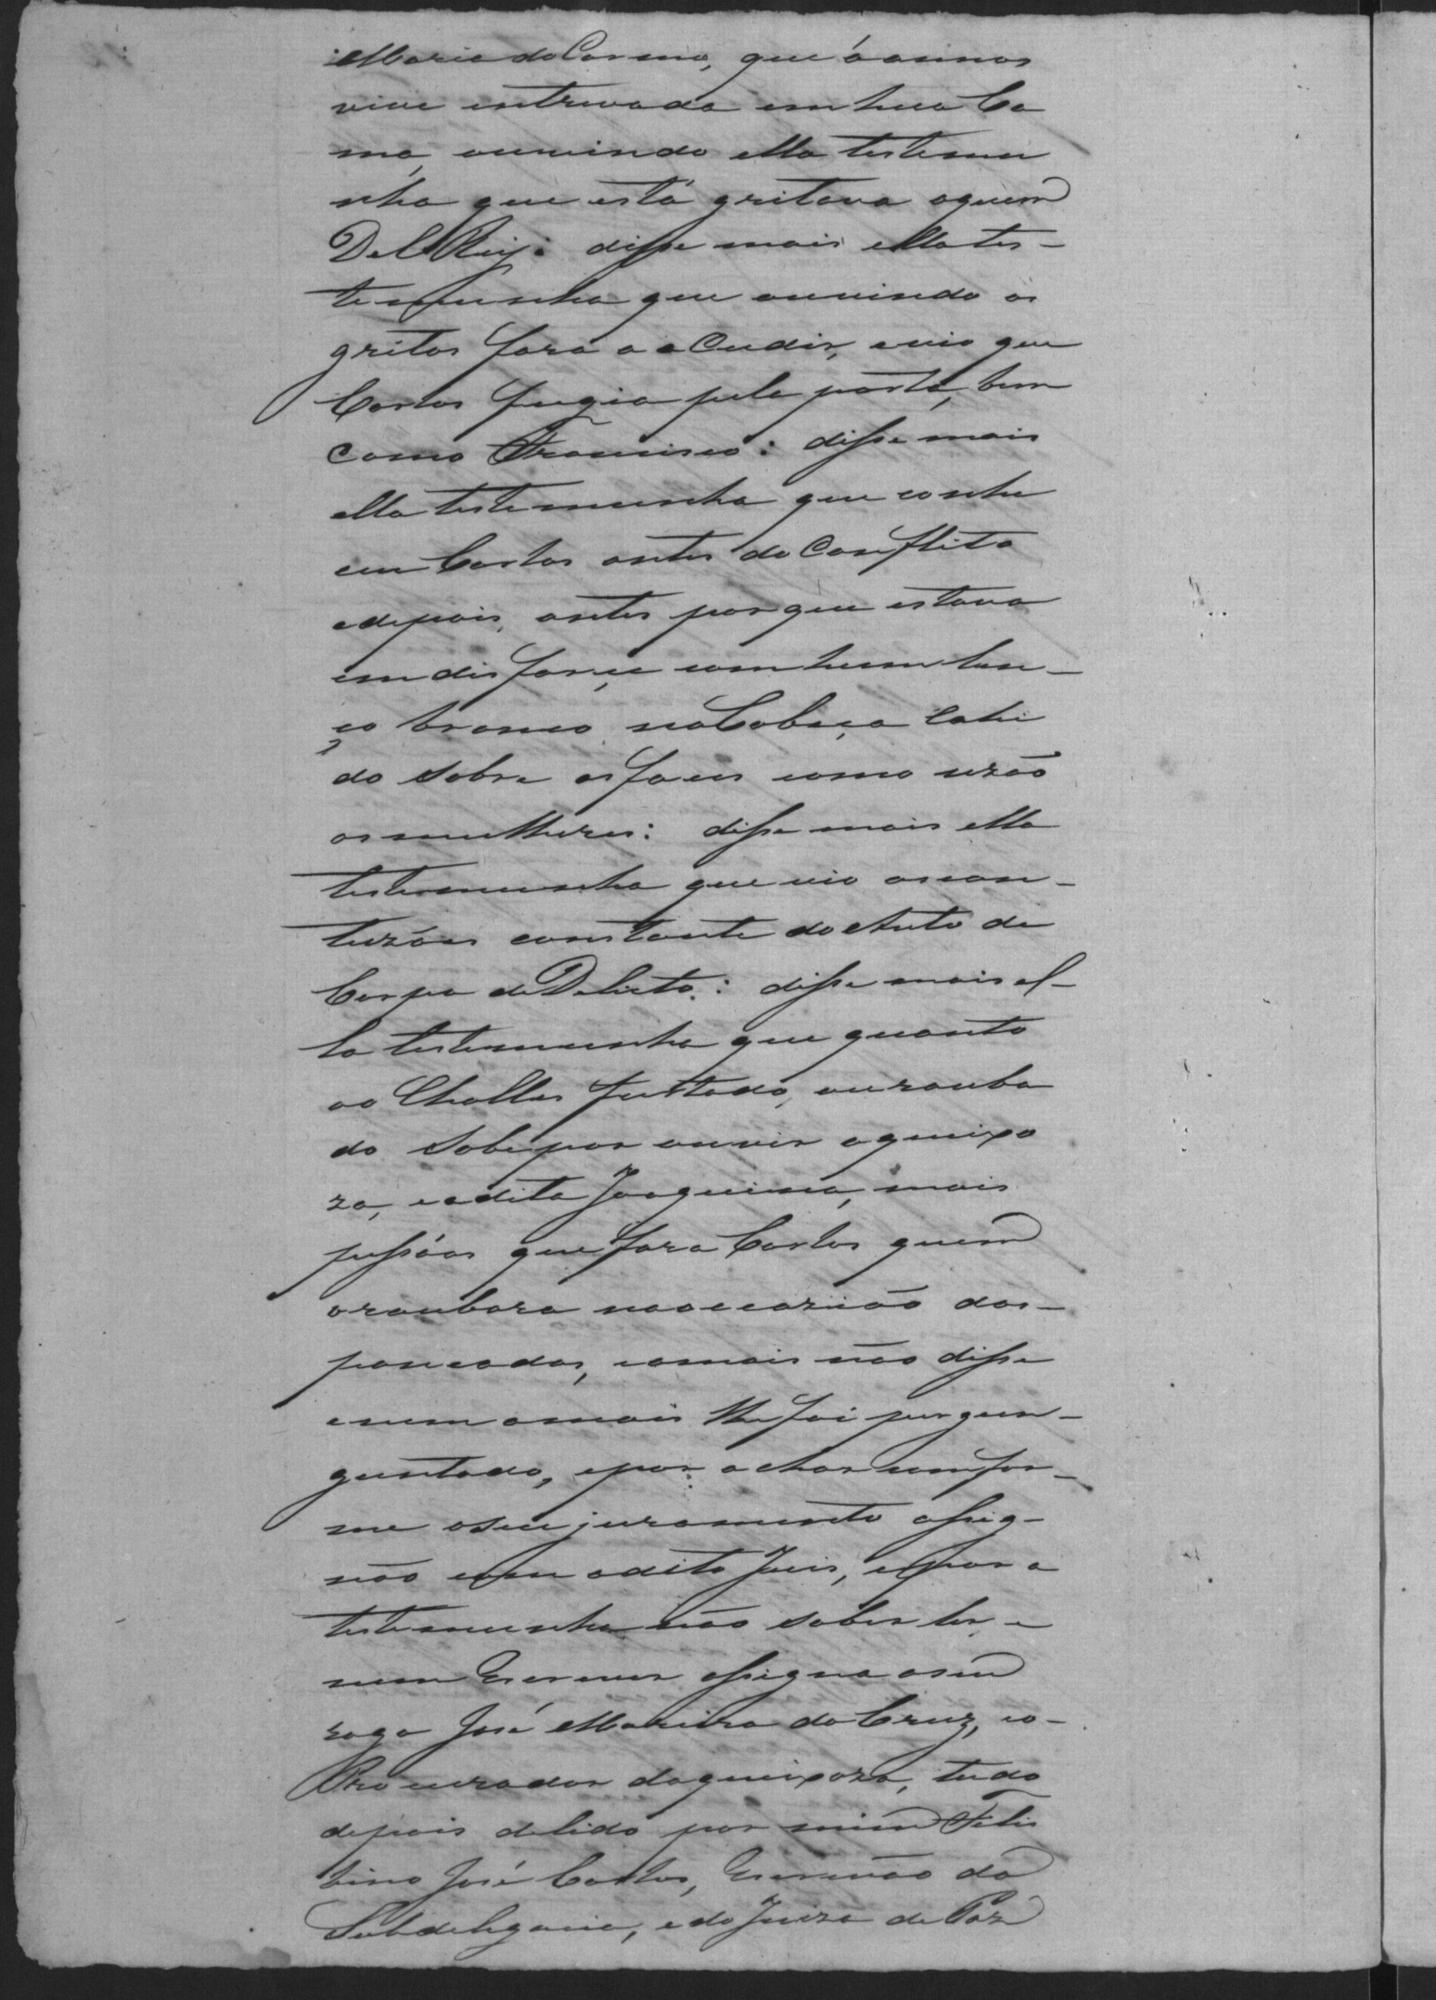 Maria do Carmo, que á annos
vive entrevada em hua Ca
ma, ouvindo ella testemu
nha que esta gritava aquem
Del Rey: disse mais ella tes-
temunha que ouvindo os
gritos fora a acudir, e vio que
Carlos fugia pela porta, bem
como Francisco: disse mais
ella testemunha que conhe
ceu Carlos antes do Conflito
e depois, antes porque estava
em disfarçe com hum len-
ço branco na Cabeça Cahi
do sobre as faces como uzão
as mulheres: disse mais ella
testemunha que vio as con-
tuzões constante do Auto de
Corpo de Delicto: disse mais el-
la testemunha que quanto
ao Challes furtado, ou rouba
do sabe por ouvir a queixo
za, e a dita Joaquina, mais
pessôas que fora Carlos quem
o roubara na occazião das
pancadas, e mais não disse
e nem o mais lhe foi pergun-
guntado, e por achar confor-
me o seu juramento assig-
não com o dito Juis, e por a
testemunha não saber ler e
nem Escrever assigna a seu
rogo José Moreira da Cruz, e o
Procurador da queixoza, tudo
depois de lido por mim Felis
bino José Carlos, Escrivão da
Subdelegacia, e do Juizo de Paz